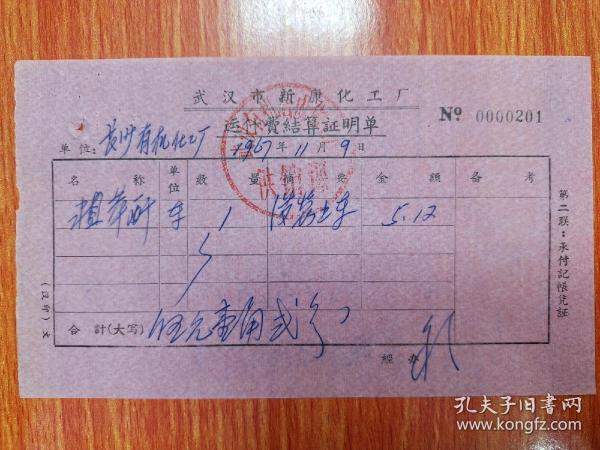 武汉市新康化工厂
运什費結算証明单
№ 0000201
单位: 长沙有机化工厂 1967年11月9日
供銷
名称 单位 数量 摘要 金額 备考
车 1 5.12
合計(大写) 伍元壹角贰分
經办
第二联:承付記帳凭証
孔夫子旧书网
www.kongfz.com